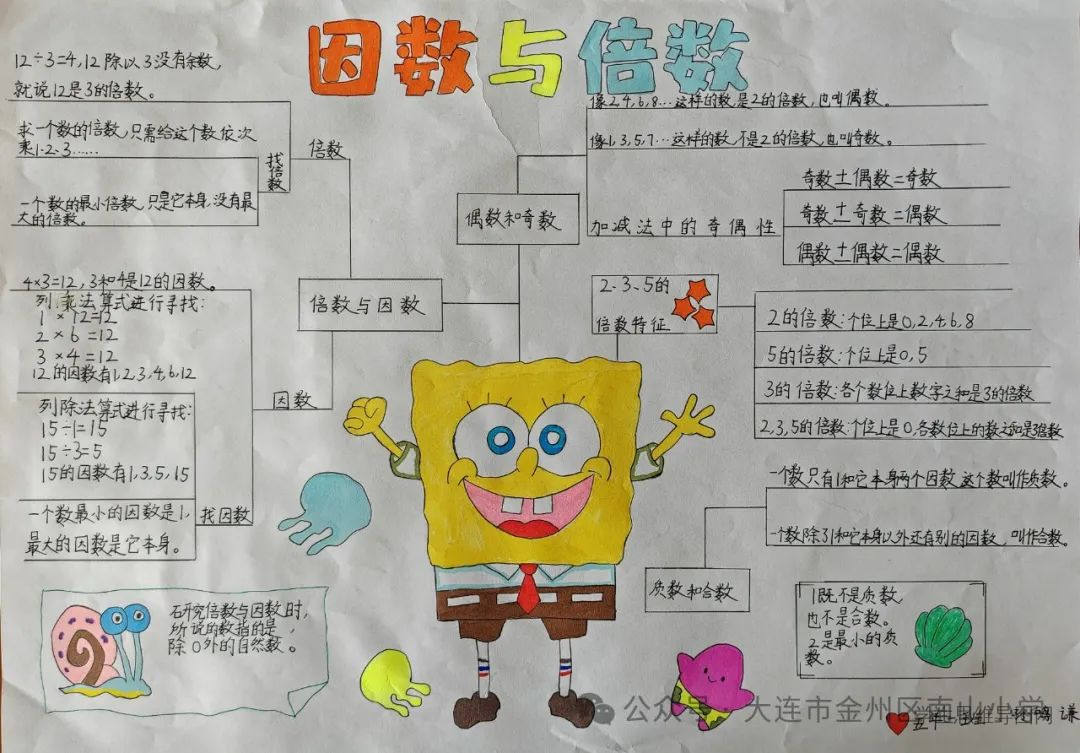 因数与倍数
12÷3=4,12除以3没有余数,
就说12是3的倍数。
求一个数的倍数,只需给这个数依次
乘1、2、3……
一个数的最小倍数,只是它本身,没有最
大的倍数。
找倍数
倍数
4×3=12,3和4是12的因数。
列乘法算式进行寻找:
1×12=12
2×6=12
3×4=12
12的因数有1,2,3,4,6,12
列除法算式进行寻找:
15÷1=15
15÷3=5
15的因数有1,3,5,15
一个数最小的因数是1,
最大的因数是它本身。
找因数
因数
倍数与因数
偶数和奇数
像2,4,6,8…这样的数是2的倍数,也叫偶数。
像1,3,5,7…这样的数,不是2的倍数,也叫奇数。
加减法中的奇偶性
奇数±偶数=奇数
奇数±奇数=偶数
偶数±偶数=偶数
2、3、5的
倍数特征
2的倍数:个位上是0,2,4,6,8
5的倍数:个位上是0,5
3的倍数:各个数位上数字之和是3的倍数
2,3,5的倍数:个位上是0,各数位上的数之和是3倍数
质数和合数
一个数只有1和它本身两个因数,这个数叫作质数。
一个数除了1和它本身以外还有别的因数,叫作合数。
研究倍数与因数时,
所说的数指的是
除0外的自然数。
1既不是质数,
也不是合数。
2是最小的质
数。
公众号·大连市金州区南山小学
谦